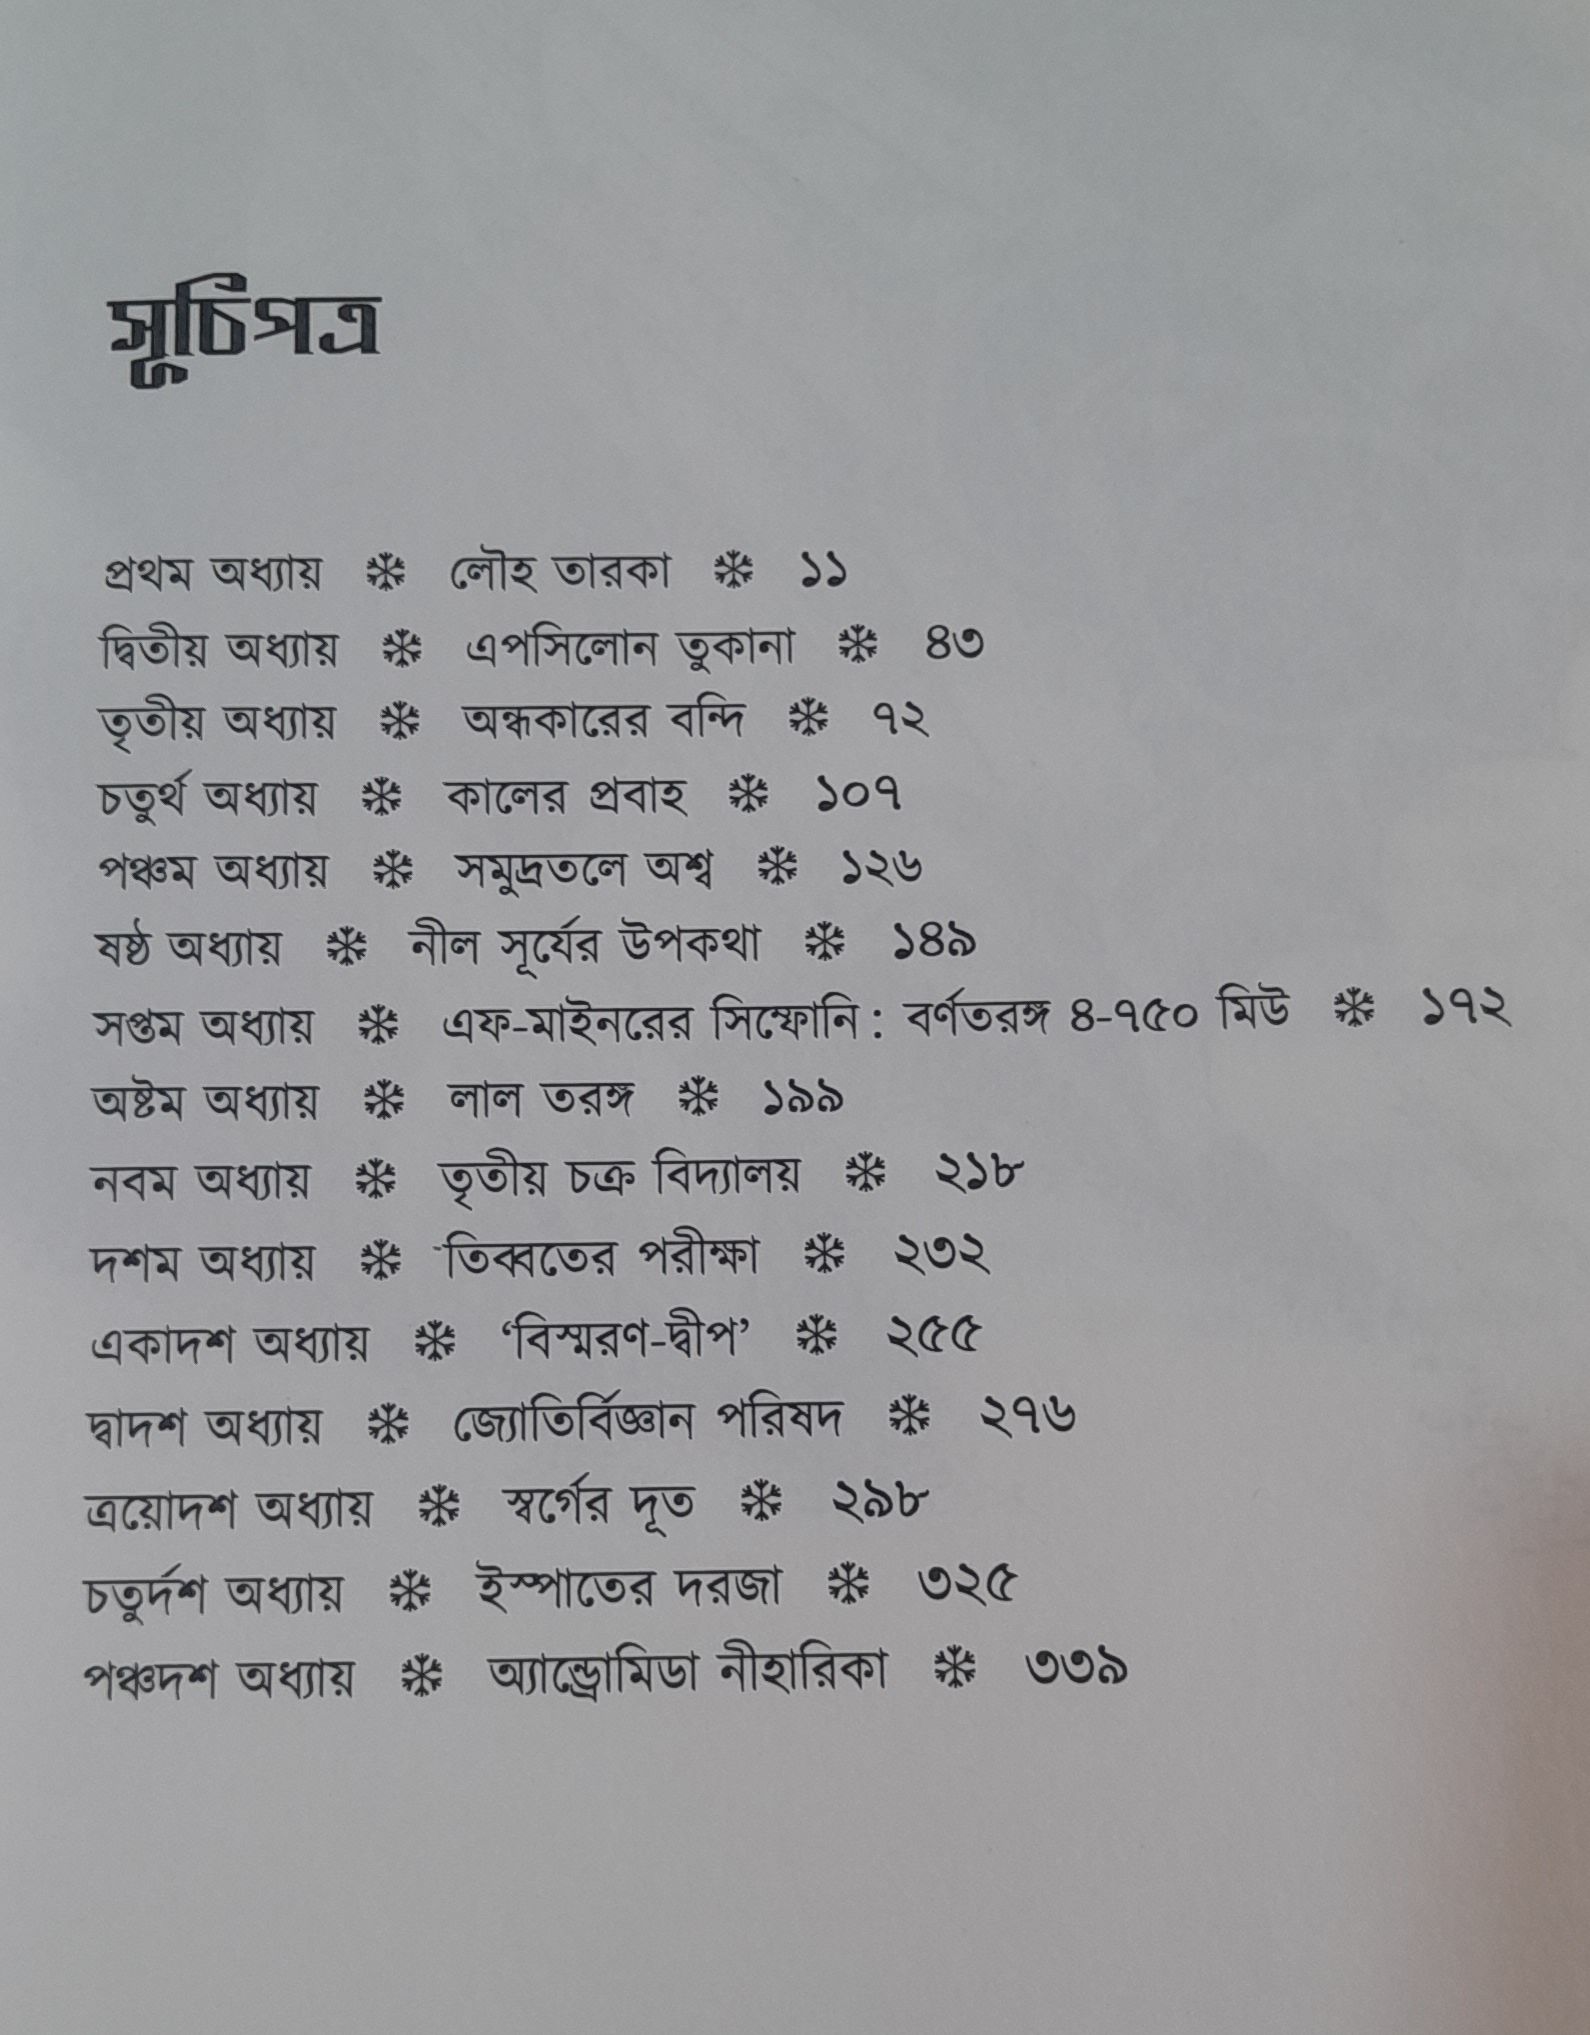 সূচিপত্র
প্রথম অধ্যায় ❇ লৌহ তারকা ❇ ১১
দ্বিতীয় অধ্যায় ❇ এপসিলোন তুকানা ❇ ৪৩
তৃতীয় অধ্যায় ❇ অন্ধকারের বন্দি ❇ ৭২
চতুর্থ অধ্যায় ❇ কালের প্রবাহ ❇ ১০৭
পঞ্চম অধ্যায় ❇ সমুদ্রতলে অশ্ব ❇ ১২৬
ষষ্ঠ অধ্যায় ❇ নীল সূর্যের উপকথা ❇ ১৪৯
সপ্তম অধ্যায় ❇ এফ-মাইনরের সিম্ফোনি : বর্ণতরঙ্গ ৪-৭৫০ মিউ ❇ ১৭২
অষ্টম অধ্যায় ❇ লাল তরঙ্গ ❇ ১৯৯
নবম অধ্যায় ❇ তৃতীয় চক্র বিদ্যালয় ❇ ২১৮
দশম অধ্যায় ❇ তিব্বতের পরীক্ষা ❇ ২৩২
একাদশ অধ্যায় ❇ ‘বিস্মরণ-দ্বীপ’ ❇ ২৫৫
দ্বাদশ অধ্যায় ❇ জ্যোতির্বিজ্ঞান পরিষদ ❇ ২৭৬
ত্রয়োদশ অধ্যায় ❇ স্বর্গের দূত ❇ ২৯৮
চতুর্দশ অধ্যায় ❇ ইস্পাতের দরজা ❇ ৩২৫
পঞ্চদশ অধ্যায় ❇ অ্যান্ড্রোমিডা নীহারিকা ❇ ৩৩৯